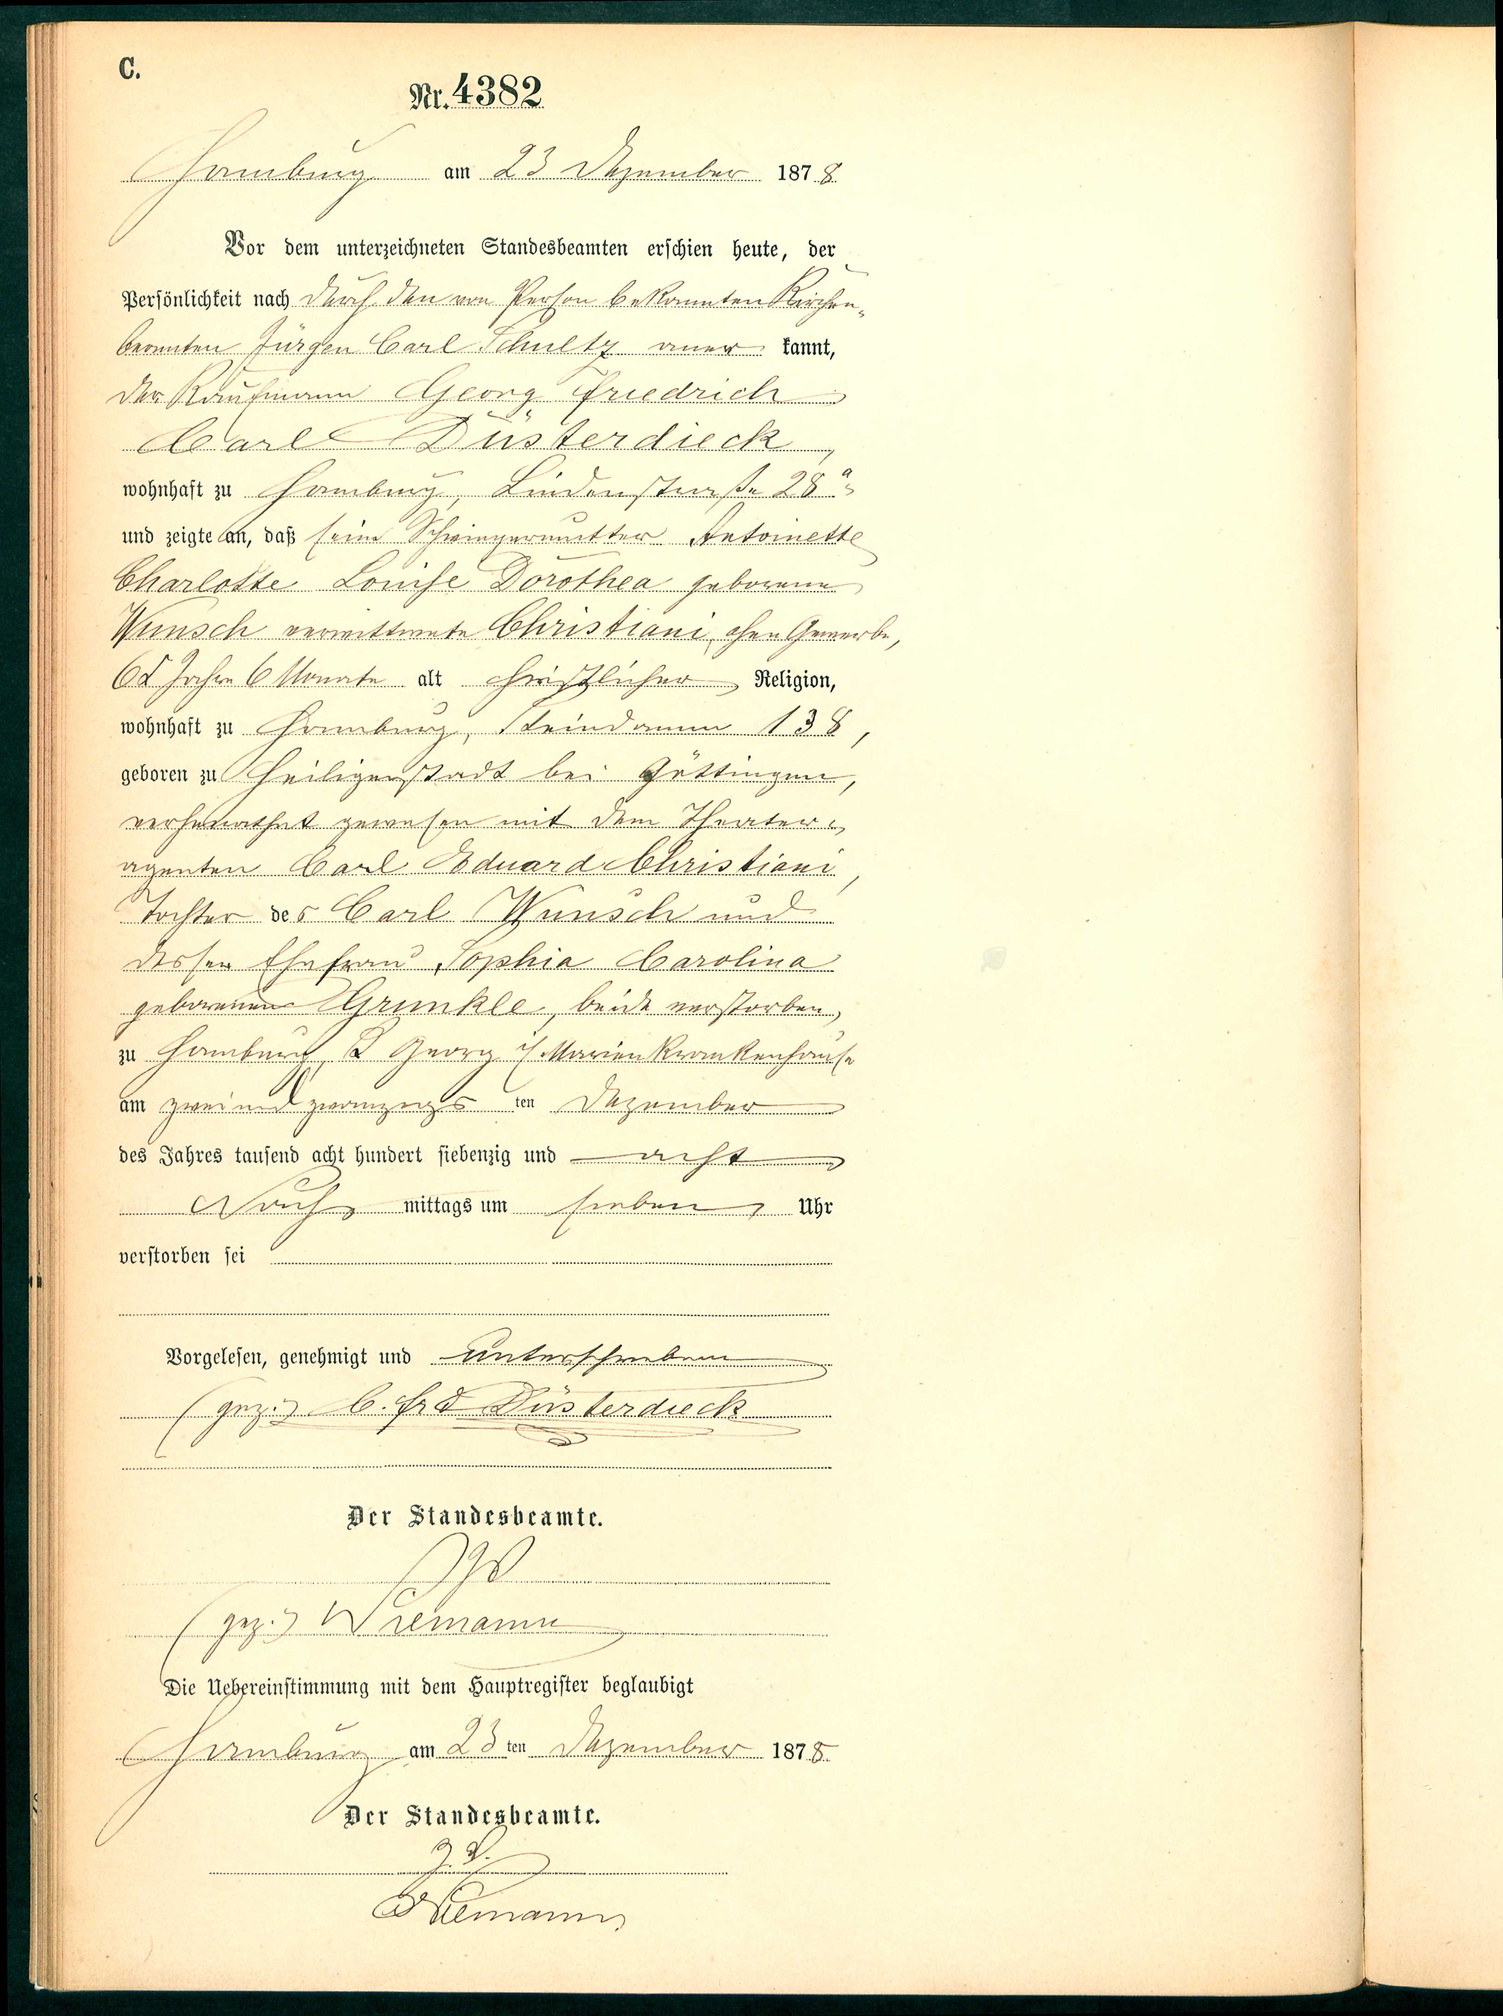 C.
Nr. 4382
Hamburg am 23 Dezember 1878
Vor dem unterzeichneten Standesbeamten erschien heute, der
Persönlichkeit nach durch den von Person bekannten Kirchen-
beamten Jürgen Carl Schultz aner kannt,
der Kaufmann Georg Friedrich
Carl Düsterdieck,
wohnhaft zu Hamburg, Lindenstraße 28a
und zeigte an, daß seine Schwiegermutter Antoinette
Charlotte Louise Dorothea geborene
Wunsch verwittwete Christiani, ohne Gewerbe,
Jahre 6 Monate alt christlicher Religion,
wohnhaft zu Hamburg, Steindamm 138,
geboren zu Heiligenstadt bei Göttingen,
verheirathet gewesen mit dem Theater-
agenten Carl Eduard Christiani,
Tochter des Carl Wunsch und
dessen Ehefrau Sophia Carolina
geborenen Grunkle, beide verstorben,
zu Hamburg, St Georg i/ Marienkrankenhause
am zweiundzwanzigs ten Dezember
des Jahres tausend acht hundert siebenzig und acht
Nach mittags um sieben Uhr
verstorben sei
Vorgelesen, genehmigt und unterschrieben
(gez.) C. Frd Düsterdieck
Der Standesbeamte.
(gez.) Niemann
Die Uebereinstimmung mit dem Hauptregister beglaubigt
Hamburg am 23 ten Dezember 1878
Der Standesbeamte.
Niemann